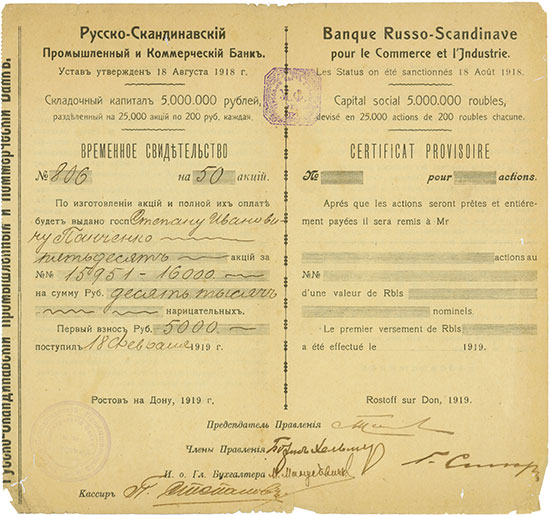 Русско-Скандинавскій
Промышленный и Коммерческій Банкъ.
Уставъ утвержденъ 18 Августа 1918 г.
Складочный капиталъ 5.000.000 рублей,
раздѣленный на 25,000 акцій по 200 руб. каждая.
ВРЕМЕННОЕ СВИДѢТЕЛЬСТВО
№ 806 на 50 акцій.
По изготовленіи акцій и полной ихъ оплатѣ
будетъ выдано госп. Степану Иванови-
чу Панченко
пятьдесятъ акцій за
№№ 15951 - 16000
на сумму Руб. десять тысячъ
нарицательныхъ.
Первый взносъ Руб. 5000
поступилъ 18 февраля 1919 г.
Ростовъ на Дону, 1919 г.
Banque Russo-Scandinave
pour le Commerce et l'Industrie.
Les Status on été sanctionnés 18 Août 1918.
Capital social 5.000.000 roubles,
devisé en 25.000 actions de 200 roubles chacune.
CERTIFICAT PROVISOIRE
№ pour actions.
Après que les actions seront prêtes et entière-
rement payées il sera remis à Mr
actions au
№№
d'une valeur de Rbls
nominels.
Le premier versement de Rbls.
a été effectué le 1919.
Rostoff sur Don, 1919.
Предсѣдатель Правленія
Члены Правленія
И. о. Гл. Бухгалтера
Кассиръ П. Степановъ
Русско-Скандинавскій Промышленный и Коммерческій Банкъ.